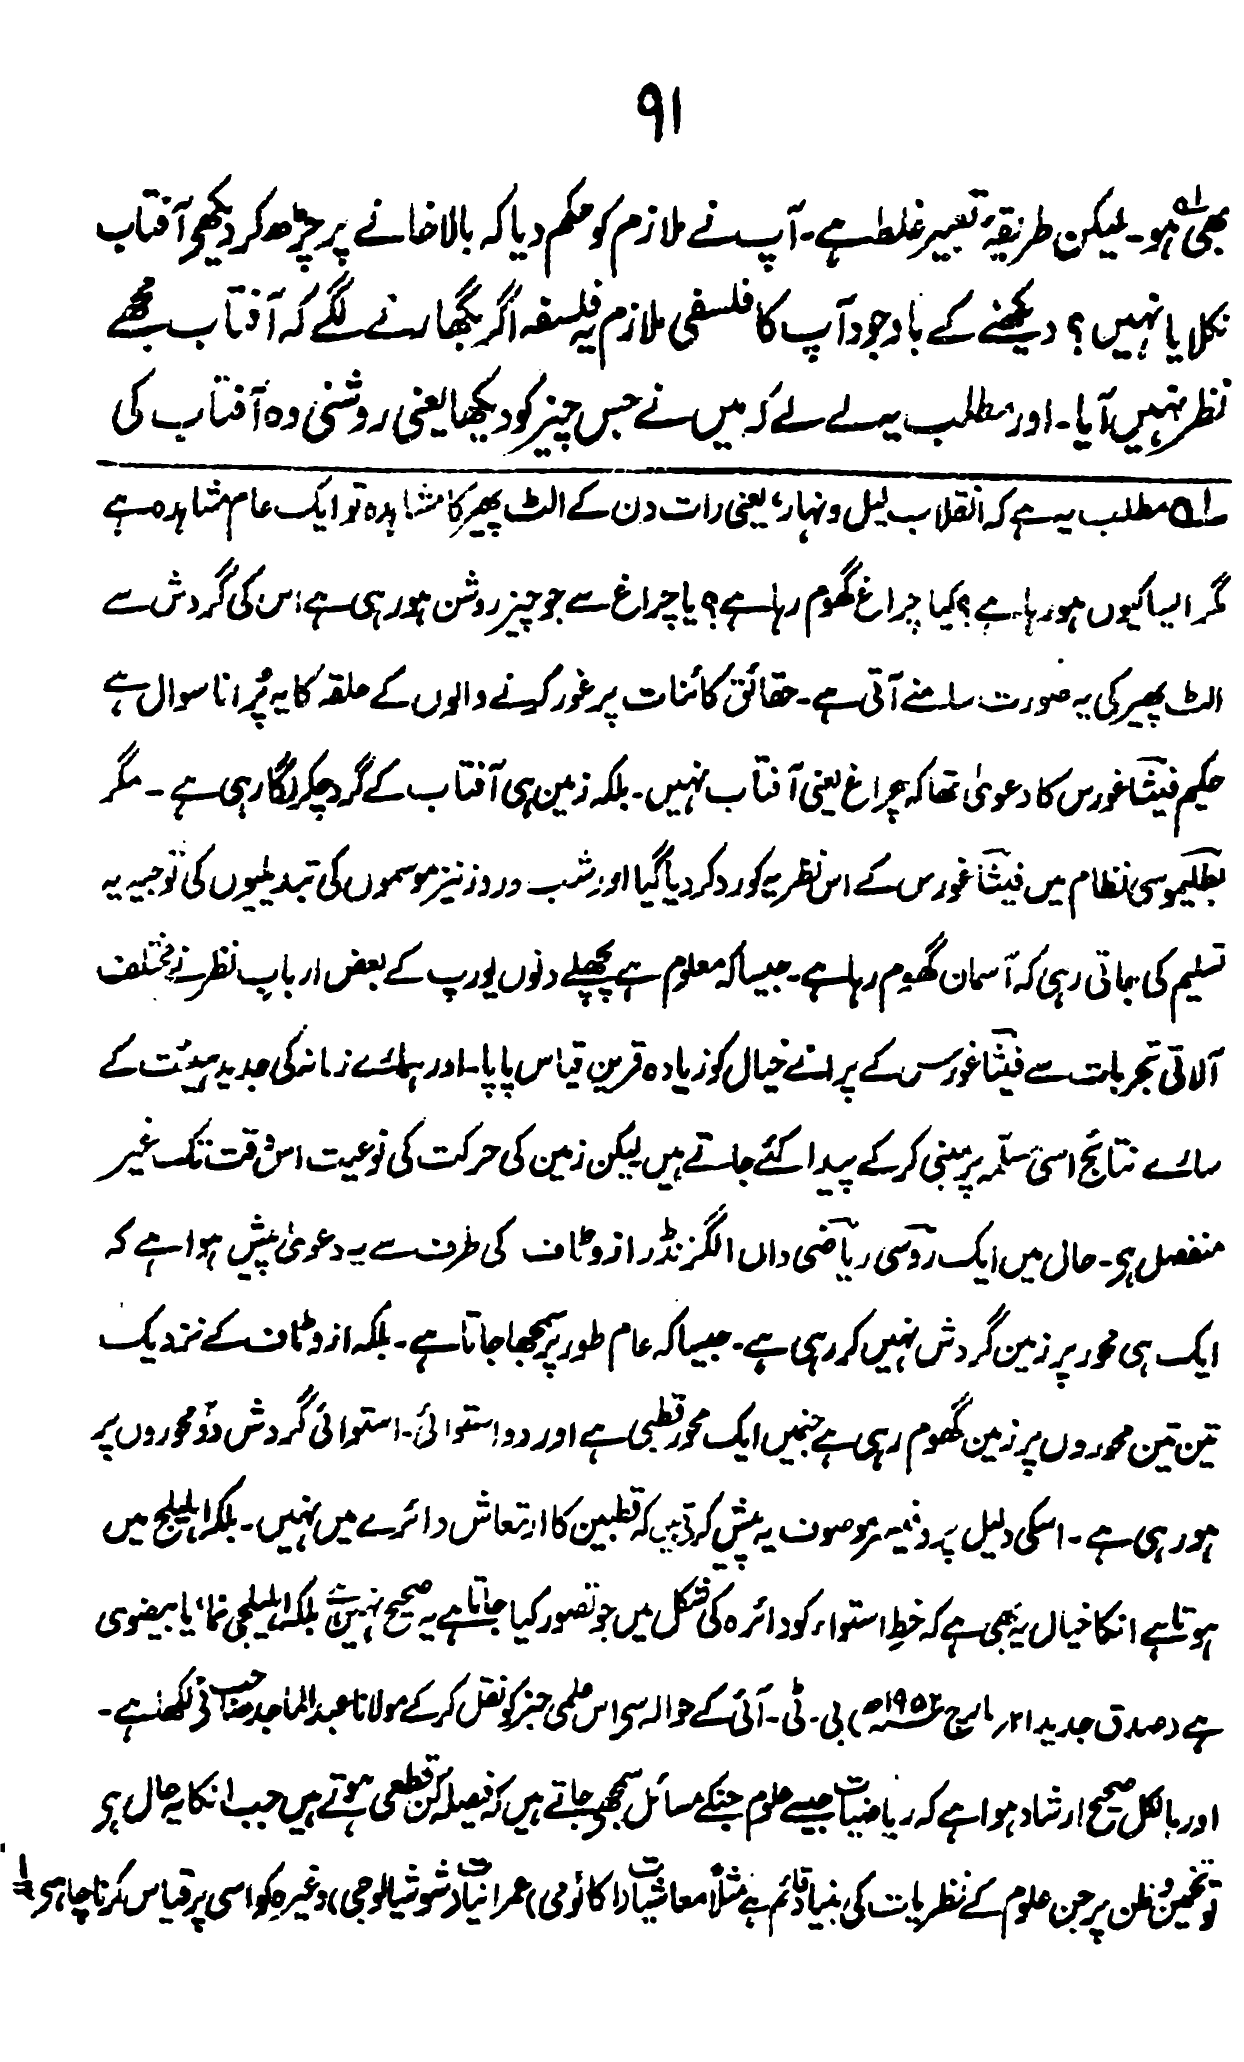 ۹۱
بھی ہو۔ لیکن طریقۂ تعبیر غلط ہے۔ آپ نے ملازم کو حکم دیا کہ بالا خانے پر چڑھ کر دیکھو آفتاب
نکلا یا نہیں؟ دیکھنے کے باوجود آپ کا فلسفی ملازم یہ فلسفہ اگر بگھارنے لگے کہ آفتاب مجھے
نظر نہیں آیا۔ اور مطلب یہ لے لے کہ میں نے جس چیز کو دیکھا یعنی روشنی وہ آفتاب کی
؎۱ مطلب یہ ہے کہ انقلاب لیل و نہار، یعنی رات دن کے الٹ پھیر کا مشاہدہ تو ایک عام مشاہدہ ہے
مگر ایسا کیوں ہو رہا ہے؟ کیا چراغ گھوم رہا ہے؟ یا چراغ سے جو چیز روشن ہو رہی ہے اس کی گردش سے
الٹ پھیر کی یہ صورت سامنے آتی ہے۔ حقائق کائنات پر غور کرنے والوں کے حلقہ کا یہ پُرانا سوال ہے
حکیم فیثاغورس کا دعویٰ تھا کہ چراغ یعنی آفتاب نہیں۔ بلکہ زمین ہی آفتاب کے گرد چکر لگا رہی ہے۔ مگر
بطلیموسی نظام میں فیثاغورس کے اس نظریہ کو رد کر دیا گیا اور شب و روز نیز موسموں کی تبدیلیوں کی توجیہ یہ
تسلیم کی جاتی رہی کہ آسمان گھوم رہا ہے۔ جیسا کہ معلوم ہے پچھلے دنوں یورپ کے بعض ارباب نظر نے مختلف
آلاتی تجربات سے فیثاغورس کے پرانے خیال کو زیادہ قرین قیاس پایا۔ اور ہمارے زمانہ کی جدید ہیئت کے
سارے نتائج اسی مسلّمہ پر مبنی کر کے پیدا کئے جاتے ہیں لیکن زمین کی حرکت کی نوعیت اس وقت تک غیر
منفصل ہی۔ حال میں ایک روسی ریاضی داں الگزنڈر ازوٹاف کی طرف سے یہ دعویٰ پیش ہوا ہے کہ
ایک ہی محور پر زمین گردش نہیں کر رہی ہے۔ جیسا کہ عام طور پر سمجھا جاتا ہے۔ بلکہ ازوٹاف کے نزدیک
تین تین محوروں پر زمین گھوم رہی ہے جنمیں ایک محور قطبی ہے اور دو استوائی۔ استوائی گردش دو محوروں پر
ہو رہی ہے۔ اسکی دلیل پروفیسر موصوف یہ پیش کرتے ہیں کہ قطبین کا ارتعاش دائرے میں نہیں۔ بلکہ اہلیلج میں
ہوتا ہے انکا خیال یہ بھی ہے کہ خط استواء کو دائرہ کی شکل میں جو تصور کیا جاتا ہے یہ صحیح نہیں ہے بلکہ اہلیلجی نما، یا بیضوی
ہے (صدق جدید ۲۱ مارچ ۱۹۵۲ء) پی۔ ٹی۔ آئی کے حوالہ سے اس علمی خبر کو نقل کر کے مولانا عبدالماجد صاحب نے لکھا ہے۔
اور بالکل صحیح ارشاد ہوا ہے کہ ریاضیات جیسے علوم جنکے مسائل سمجھے جاتے ہیں کہ فیصلہ کن قطعی ہوتے ہیں جب انکا یہ حال ہی
تو تخمین و ظن پر جن علوم کے نظریات کی بنیاد قائم ہے مثلاً معاشیات (اکانومی) عمرانیات (شوشیالوجی) وغیرہ کو اسی پر قیاس کرنا چاہیے